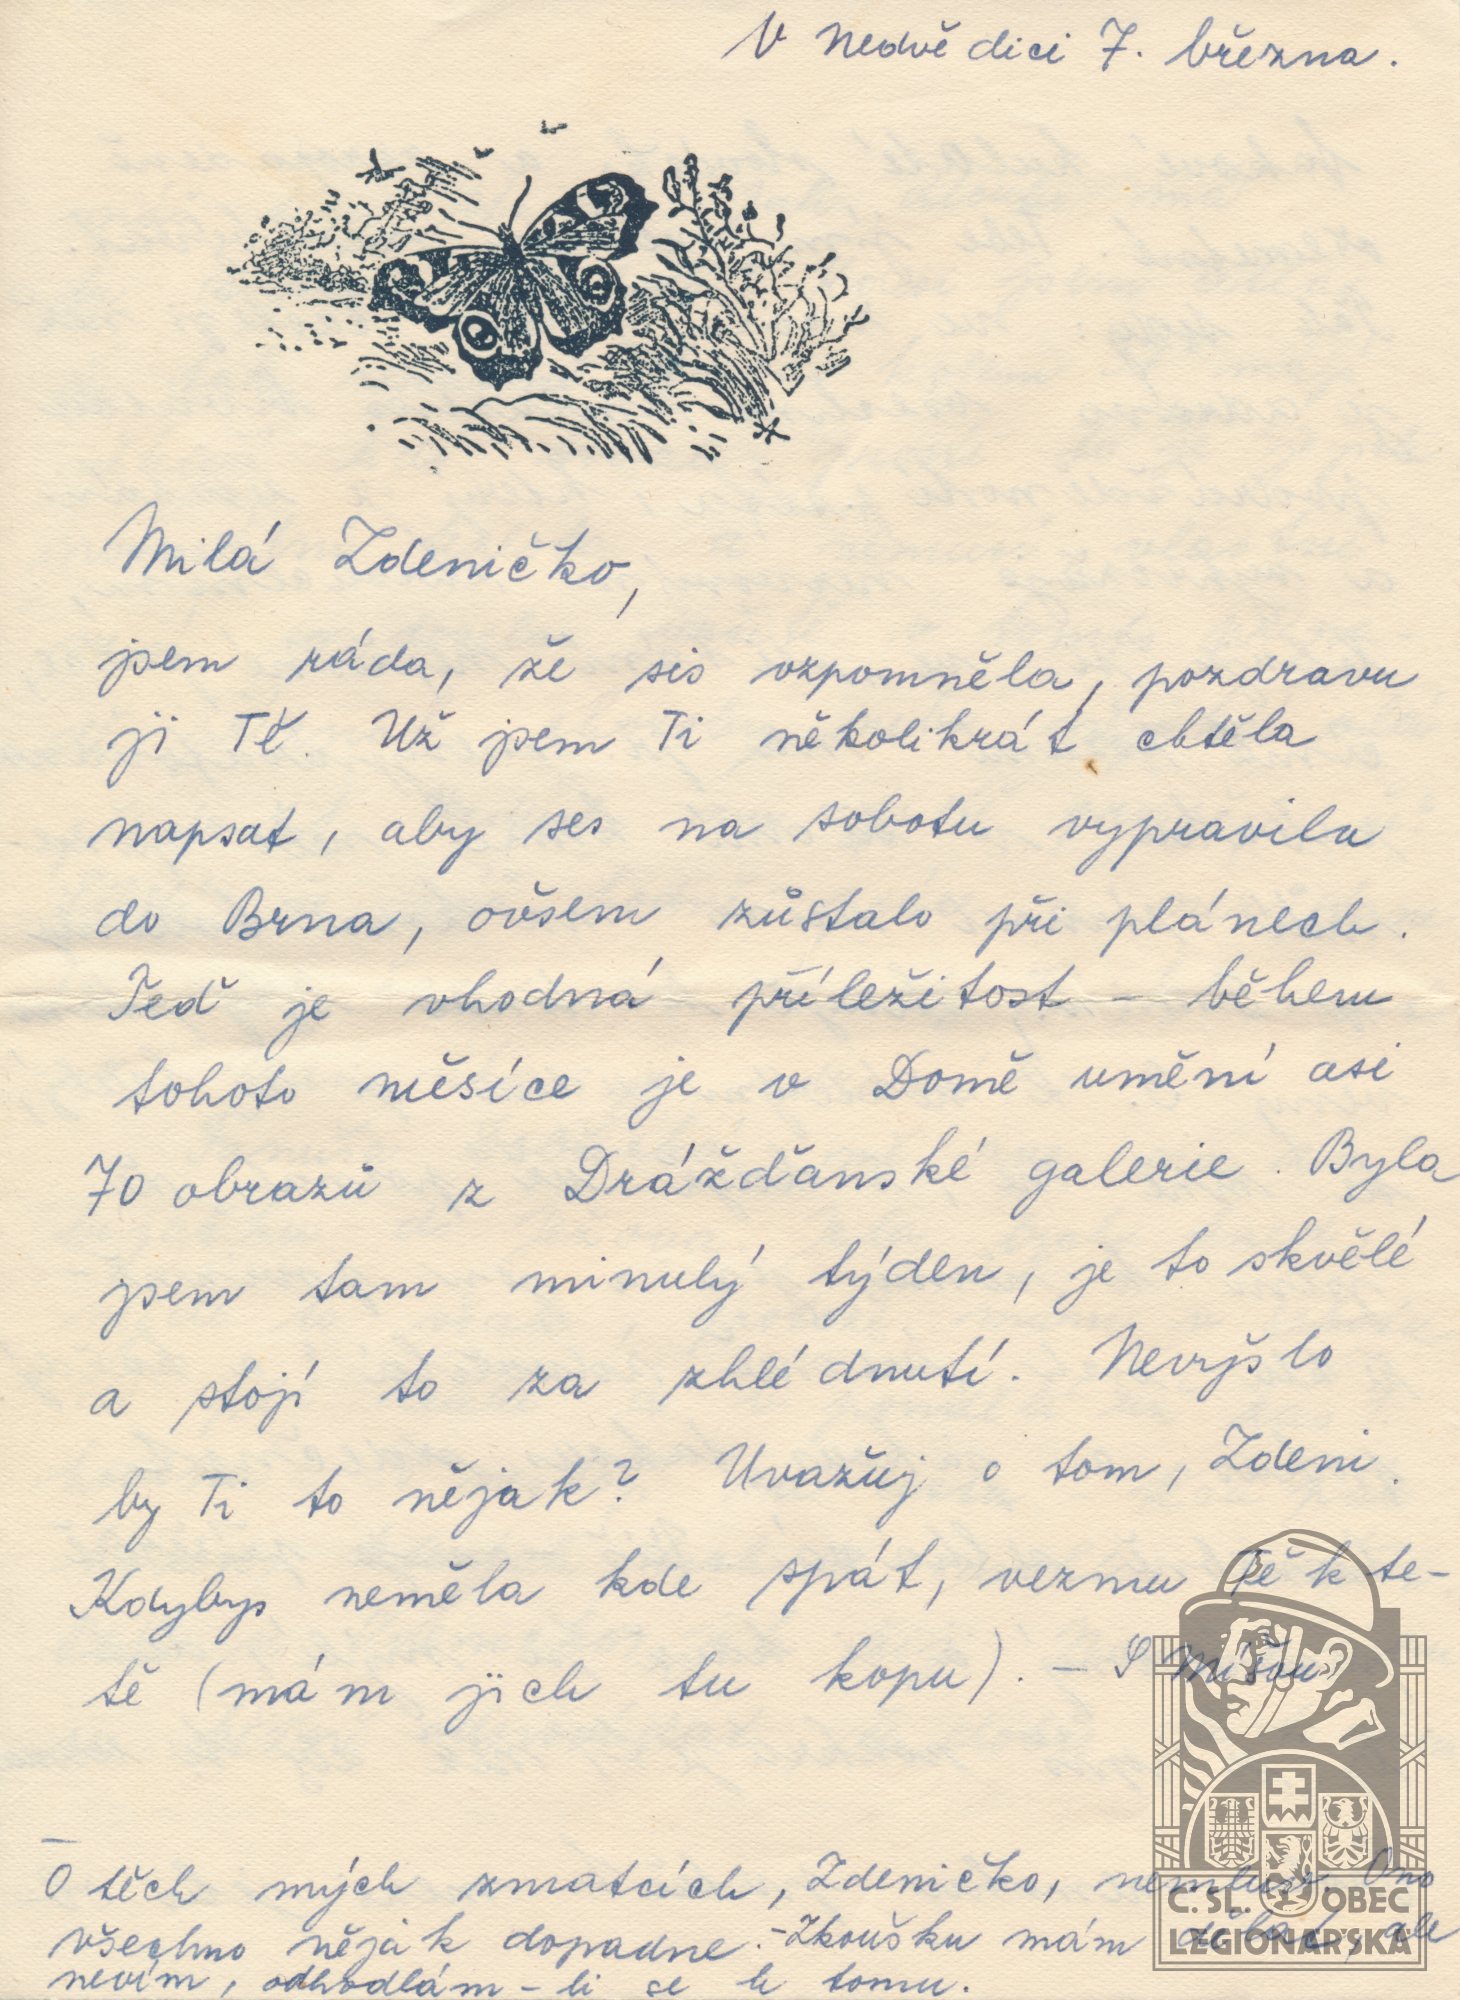 V Nedvědici 7. března.
Milá Zdeničko,
jsem ráda, že sis vzpomněla, pozdravu
ji Tě. Už jsem Ti několikrát chtěla
napsat, aby ses na sobotu vypravila
do Brna, ovšem zůstalo při plánech.
Teď je vhodná příležitost – během
tohoto měsíce je v Domě umění asi
70 obrazů z Drážďanské galerie. Byla
jsem tam minulý týden, je to skvělé
a stojí to za zhlédnutí. Nevyšlo
by Ti to nějak? Uvažuj o tom, Zdeni.
Kdybys neměla kde spát, vezmu Tě k te-
tě (mám jich tu kopu). – S Míšou
O těch mých zmatcích, Zdeničko, nemluv. Ono
všechno nějak dopadne. – Zkoušku mám dělat, ale
nevím, odhodlám-li se k tomu.
Č. SL. OBEC
LEGIONÁŘSKÁ